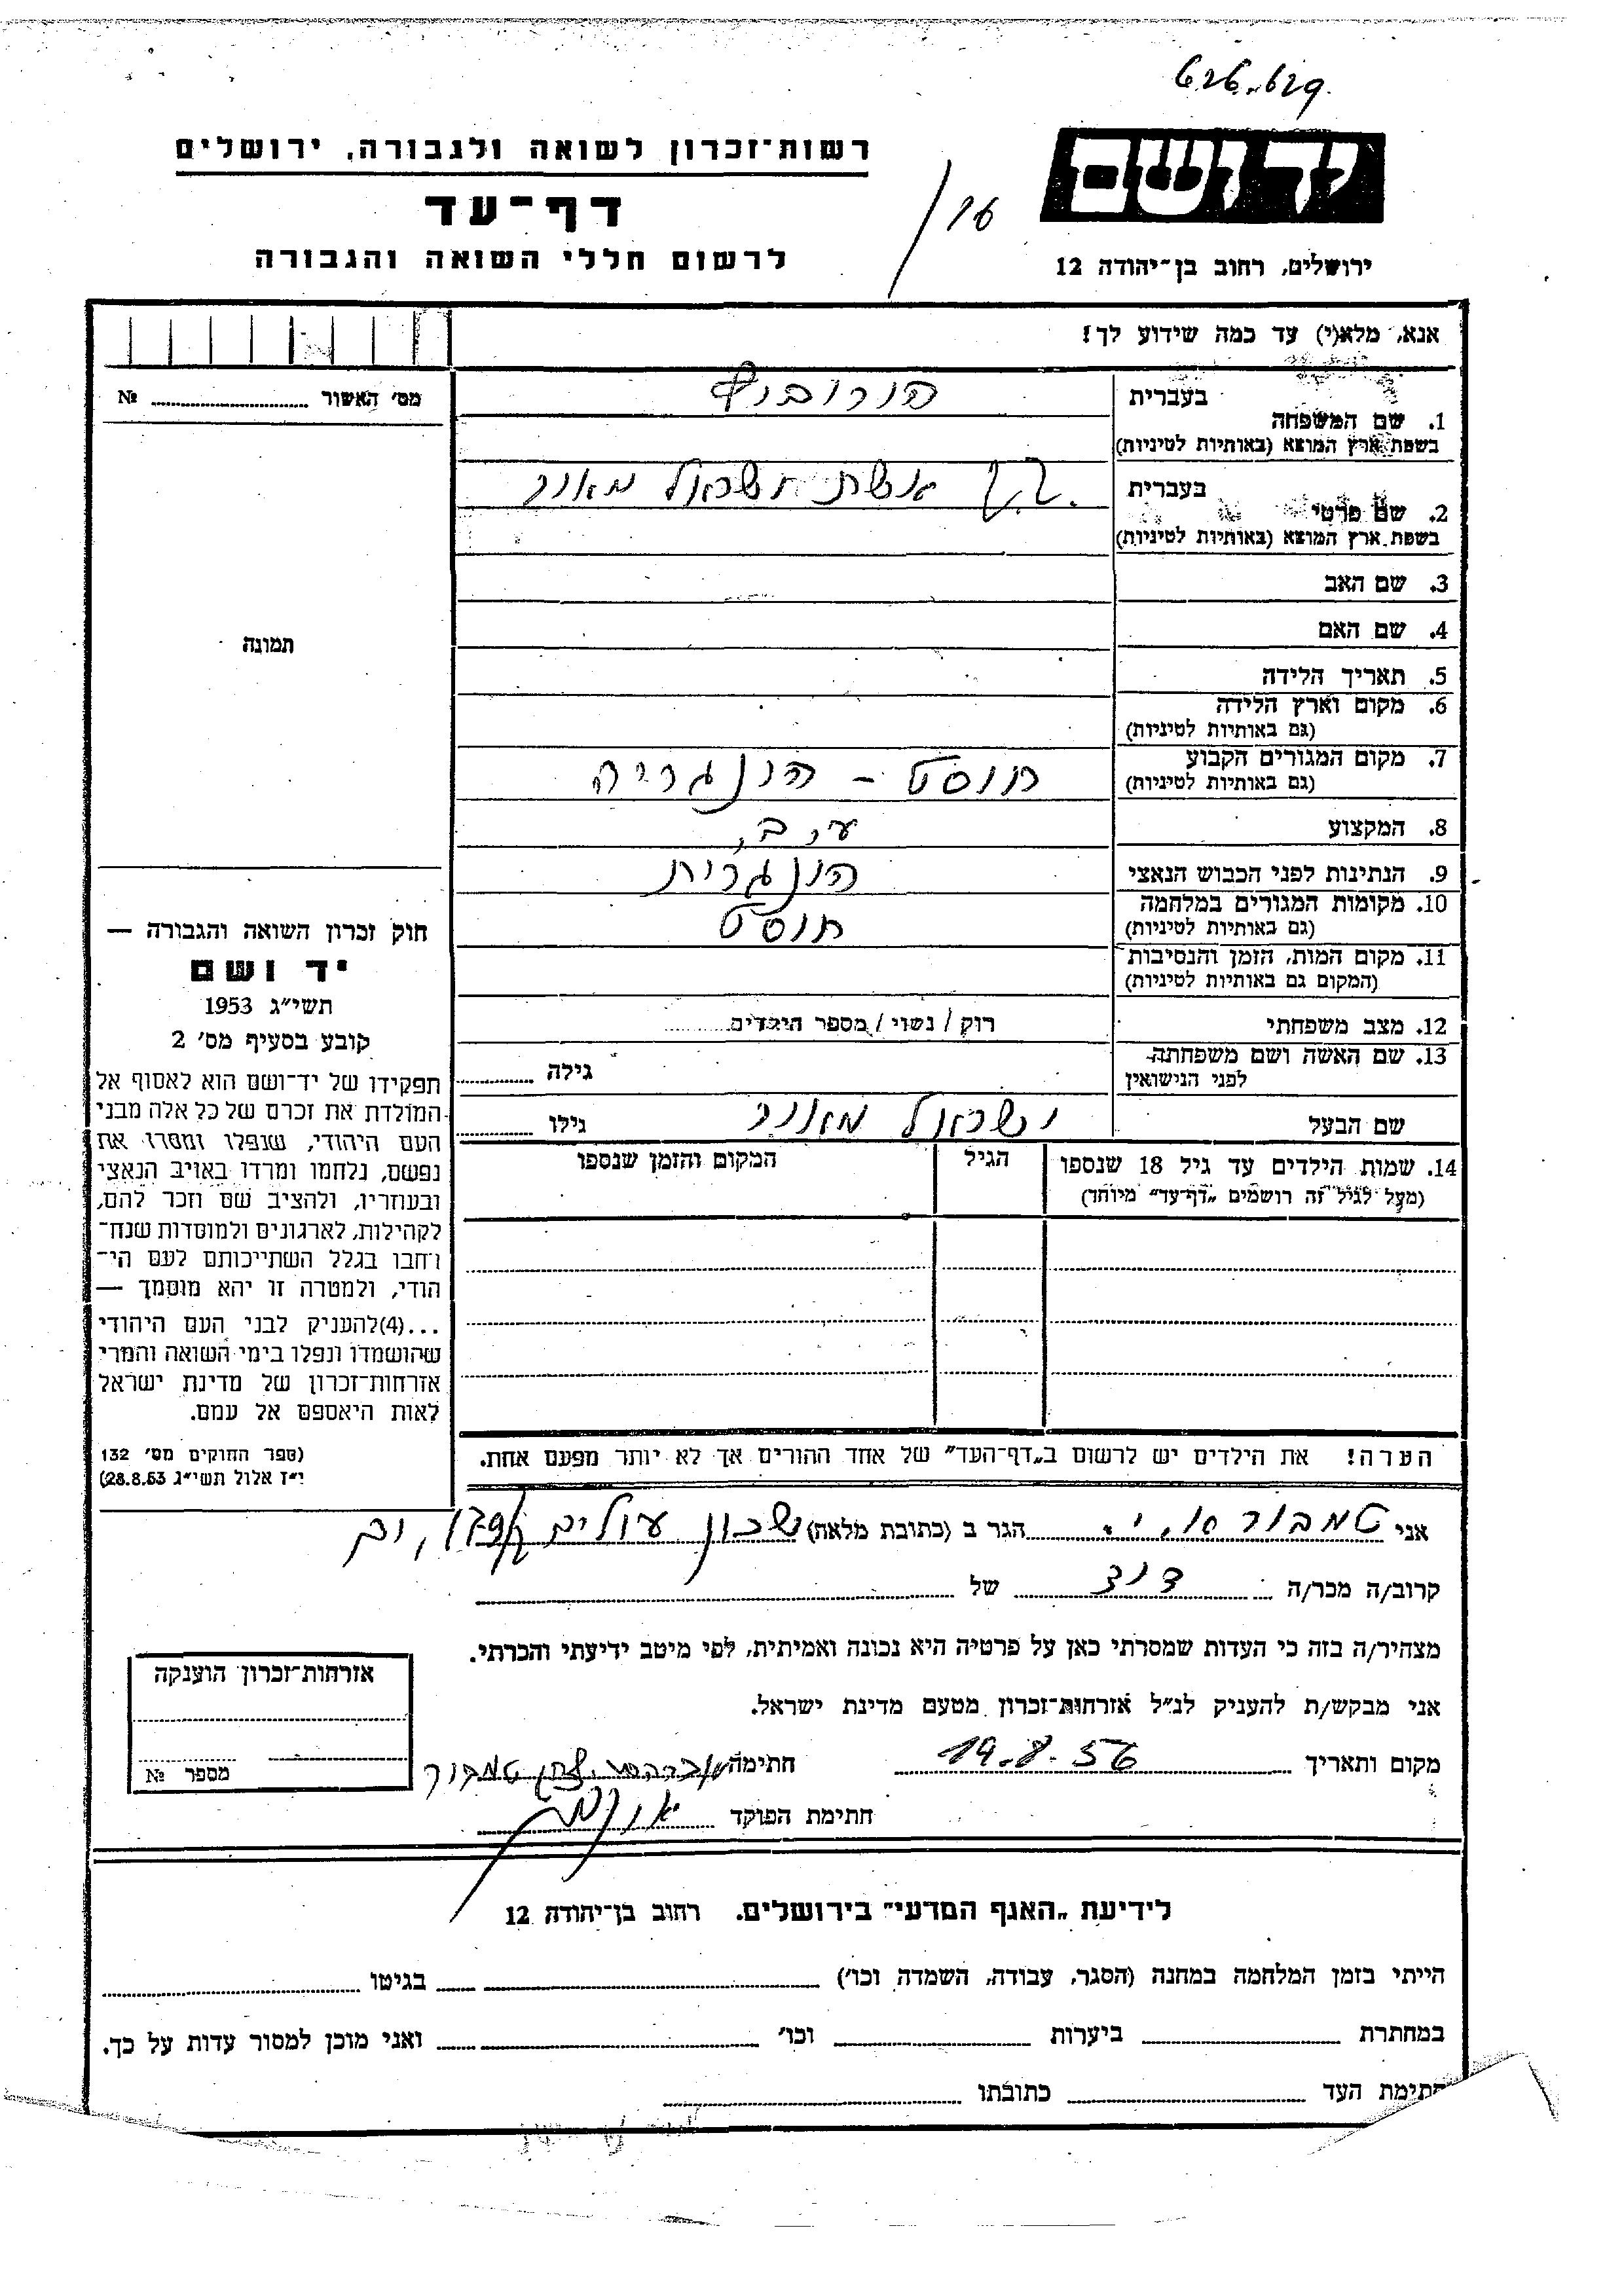 626.629
רשות־זכרון לשואה ולגבורה, ירושלים
יד ושם
דף־עד
16
לרשום חללי השואה והגבורה
ירושלים, רחוב בן־יהודה 12
אנא, מלא(י) עד כמה שידוע לך!
מס׳ האשור № 
1. שם המשפחה
בעברית הורוביץ
בשפת ארץ המוצא (באותיות לטיניות)
2. שם פרטי
בעברית אשת ישראל מאיר
בשפת ארץ המוצא (באותיות לטיניות)
3. שם האב
4. שם האם
תמונה
5. תאריך הלידה
6. מקום וארץ הלידה
(גם באותיות לטיניות)
7. מקום המגורים הקבוע חוסט - הונגריה
(גם באותיות לטיניות)
8. המקצוע ע. ב.
9. הנתינות לפני הכבוש הנאצי הונגרית
10. מקומות המגורים במלחמה חוסט
(גם באותיות לטיניות)
11. מקום המות, הזמן והנסיבות
(המקום גם באותיות לטיניות)
12. מצב משפחתי רוק / נשוי / מספר הילדים
13. שם האשה ושם משפחתה
לפני הנישואין
גילה
שם הבעל ישראל מאיר גילו
14. שמות הילדים עד גיל 18 שנספו הגיל המקום והזמן שנספו
(מעל לגיל זה רושמים „דף־עד” מיוחד)
הערה! את הילדים יש לרשום ב„דף־העד” של אחד ההורים אך לא יותר מפעם אחת.
חוק זכרון השואה והגבורה —
יד ושם
תשי״ג 1953
קובע בסעיף מס׳ 2
תפקידו של יד־ושם הוא לאסוף אל
המולדת את זכרם של כל אלה מבני
העם היהודי, שנפלו ומסרו את
נפשם, נלחמו ומרדו באויב הנאצי
ובעוזריו, ולהציב שם וזכר להם,
לקהילות, לארגונים ולמוסדות שנח־
רחבו בגלל השתייכותם לעם הי־
הודי, ולמטרה זו יהא מוסמך —
...(4)להעניק לבני העם היהודי
שהושמדו ונפלו בימי השואה והמרי
אזרחות־זכרון של מדינת ישראל
לאות היאספם אל עמם.
(ספר החוקים מס׳ 132
י״ז אלול תשי״ג 28.8.53)
אני טמבור א. י. הגר ב (כתובת מלאה) שכון עולים
קרוב/ה מכר/ה דוד של
מצהיר/ה בזה כי העדות שמסרתי כאן על פרטיה היא נכונה ואמיתית, לפי מיטב ידיעתי והכרתי.
אני מבקש/ת להעניק לנ״ל אזרחות־זכרון מטעם מדינת ישראל.
מקום ותאריך 19.8.56 חתימה טמבור
חתימת הפוקד
אזרחות־זכרון הוענקה
מספר №
לידיעת „האגף המדעי” בירושלים. רחוב בן־יהודה 12
הייתי בזמן המלחמה במחנה (הסגר, עבודה, השמדה וכו׳) בגיטו
במחתרת ביערות וכו׳ ואני מוכן למסור עדות על כך.
חתימת העד כתובתו